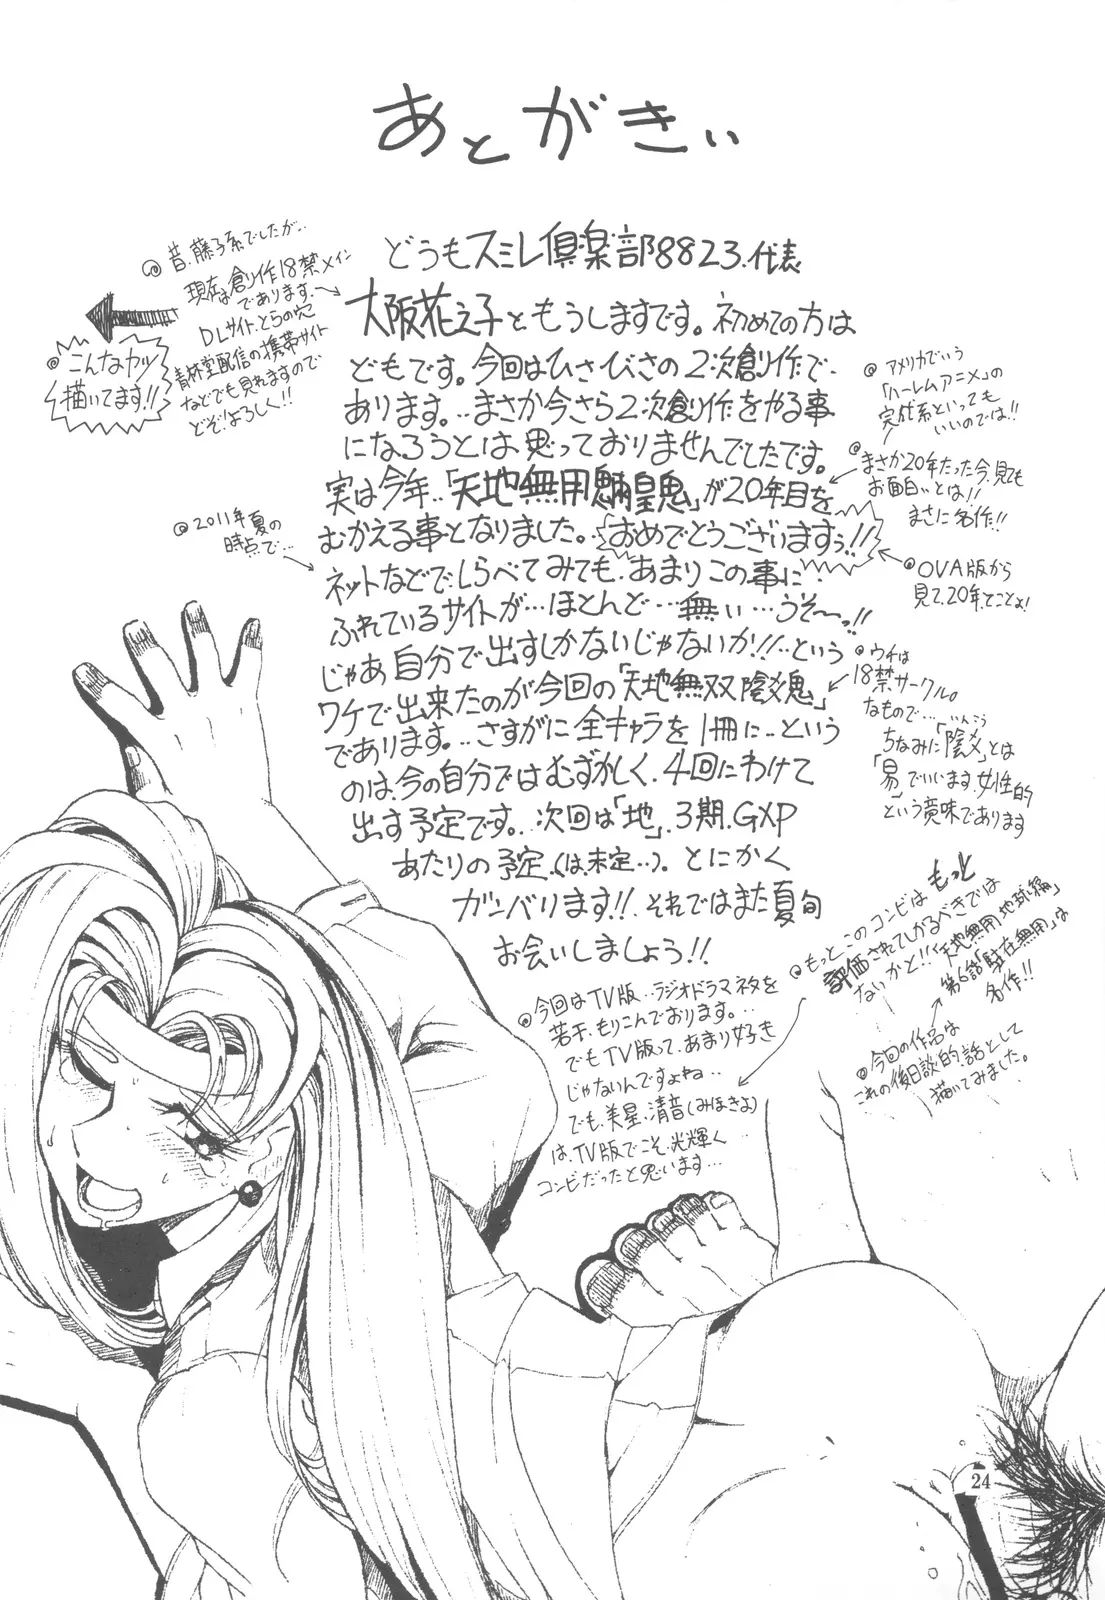 あとがきぃ
どうもスミレ倶楽部8823.代表
大阪花え子ともうしますです。初めての方は
どもです。今回はひさびさの2次創作で
あります。‥まさか今さら2次創作をやる事
になろうとは思っておりませんでしたです。
実は今年‥「天地無用魎皇鬼」が20年目を
むかえる事となりました。「おめでとうございますぅ!!
ネットなどでしらべてみても、あまりこの事に
ふれているサイトが…ほとんど…無い…うそ〜っ!!
じゃあ自分で出すしかないじゃないか!!‥という
ワケで出来たのが今回の「天地無双陰爻鬼」
であります。‥さすがに全キャラを1冊に‥という
のは、今の自分ではむずかしく、4回にわけて
出す予定です。‥次回は「地」、3期、GXP
あたりの予定、(は、未定‥)。とにかく
ガンバリます!!、それではまた夏旬
お会いしましょう!!
昔、藤子系でしたが、
現在は創作18禁メイン
であります。
DLサイト、とらの穴
青林堂配信の携帯サイト
などでも見れますので
どぞ!よろしく!!
こんなカンジ
描いてます!!
2011年夏の
時点で…
アメリカでいう
「ハーレムアニメ」の
完成系といっても
いいのでは!!
まさか20年たった今、見ても
お面白いとは!!
まさに名作!!
OVA版から
見て、20年、てことよ!
ウチは
18禁サークル。
なもので…
いんこう
ちなみに「陰爻」とは
「易」でいいます、女性的
という意味であります
もっとこのコンビはもっと
評価されてしかるべきでは
ないかと!!「天地無用地球編」
第6話「駐在無用」は
名作!!
今回の作品は
これの後日談的話として
描いてみました。
今回はTV版‥ラジオドラマネタを
若干、もりこんでおります。…
でもTV版って、あまり好き
じゃないんですよね…
でも、美星、清音(みほきよ)
は、TV版でこそ、光輝く
コンビだったと思います…
24